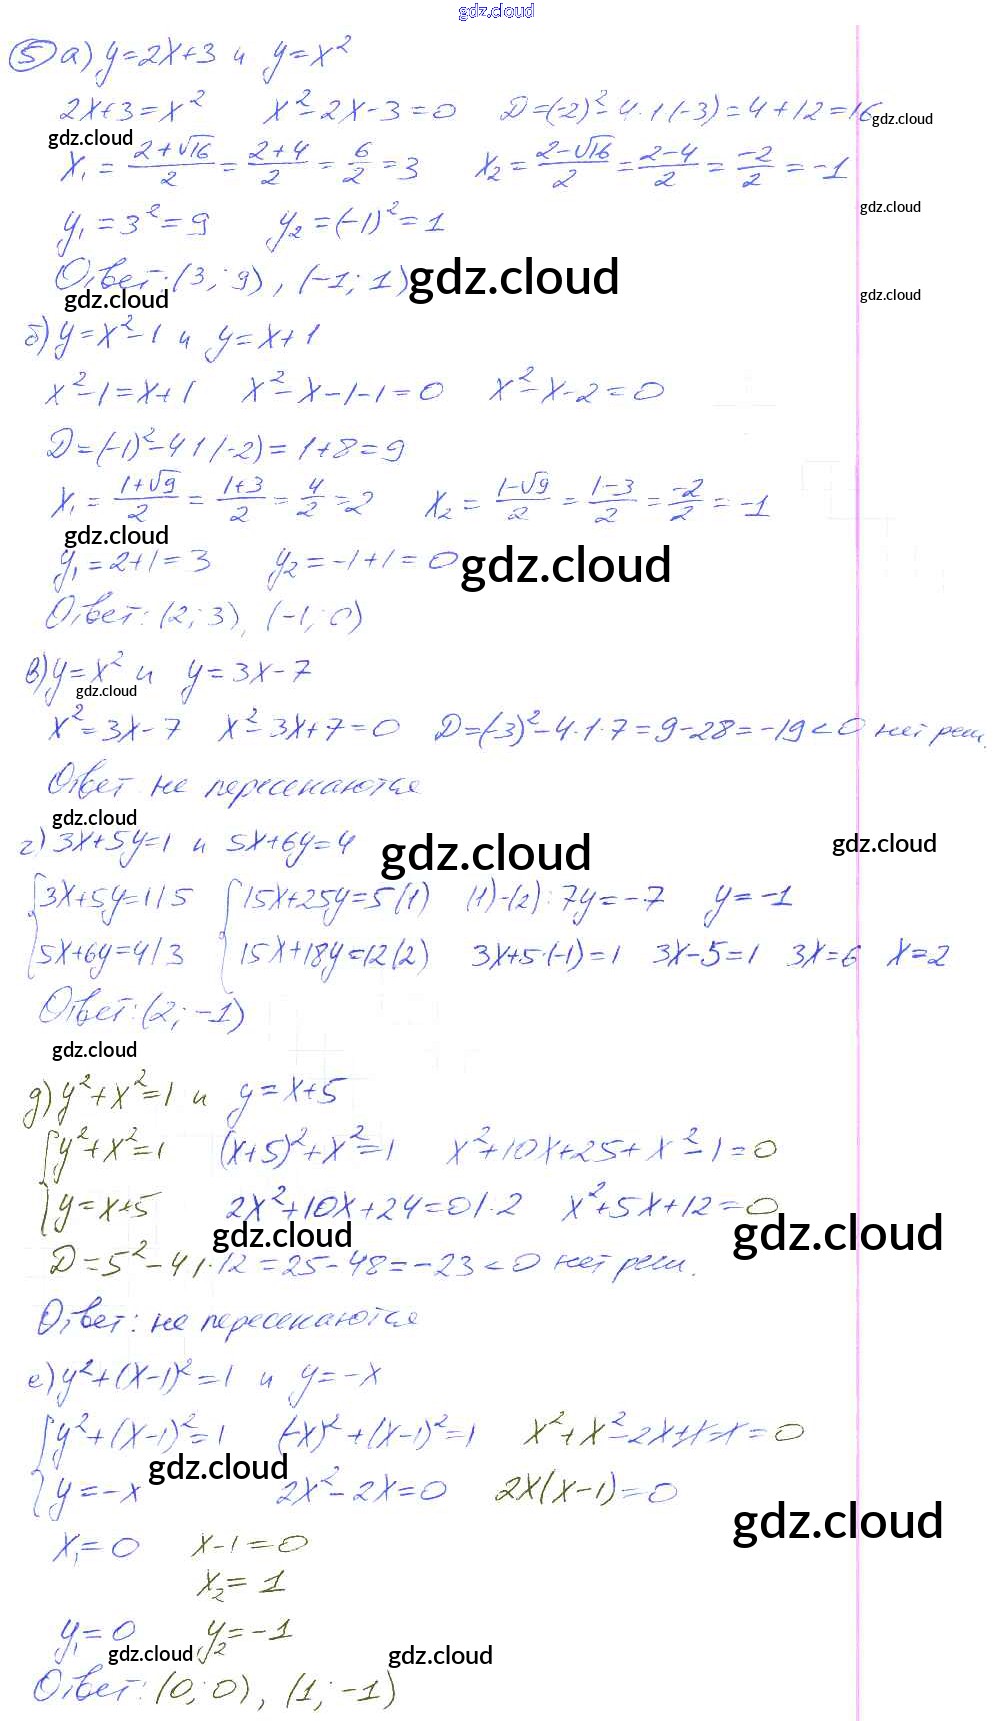 gdz.cloud
5 а) y=2x+3 и y=x²
2x+3=x² x²-2x-3=0 D=(-2)²-4·1(-3)=4+12=16 gdz.cloud
gdz.cloud
x₁=(2+√16)/2=(2+4)/2=6/2=3 x₂=(2-√16)/2=(2-4)/2=-2/2=-1
gdz.cloud
y₁=3²=9 y₂=(-1)²=1
Ответ: (3; 9), (-1; 1) gdz.cloud
gdz.cloud gdz.cloud
б) y=x²-1 и y=x+1
x²-1=x+1 x²-x-1-1=0 x²-x-2=0
D=(-1)²-4·1(-2)=1+8=9
x₁=(1+√9)/2=(1+3)/2=4/2=2 x₂=(1-√9)/2=(1-3)/2=-2/2=-1
gdz.cloud
y₁=2+1=3 y₂=-1+1=0 gdz.cloud
Ответ: (2; 3), (-1; 0)
в) y=x² и y=3x-7
gdz.cloud
x²=3x-7 x²-3x+7=0 D=(-3)²-4·1·7=9-28=-19<0 нет реш.
Ответ не пересекаются
gdz.cloud
г) 3x+5y=1 и 5x+6y=4 gdz.cloud gdz.cloud
{3x+5y=1/5 {15x+25y=5(1) (1)-(2): 7y=-7 y=-1
5x+6y=4/3 15x+18y=12(2) 3x+5·(-1)=1 3x-5=1 3x=6 x=2
Ответ: (2; -1)
gdz.cloud
д) y²+x²=1 и y=x+5
{y²+x²=1 (x+5)²+x²=1 x²+10x+25+x²-1=0
y=x+5 2x²+10x+24=0/:2 x²+5x+12=0
gdz.cloud gdz.cloud
D=5²-4·1·12=25-48=-23<0 нет реш.
Ответ: не пересекаются
е) y²+(x-1)²=1 и y=-x
{y²+(x-1)²=1 (-x)²+(x-1)²=1 x²+x²-2x+1-1=0
gdz.cloud
y=-x 2x²-2x=0 2x(x-1)=0
gdz.cloud
x₁=0 x-1=0
x₂=1
y₁=0 y₂=-1
gdz.cloud gdz.cloud
Ответ: (0; 0), (1; -1)